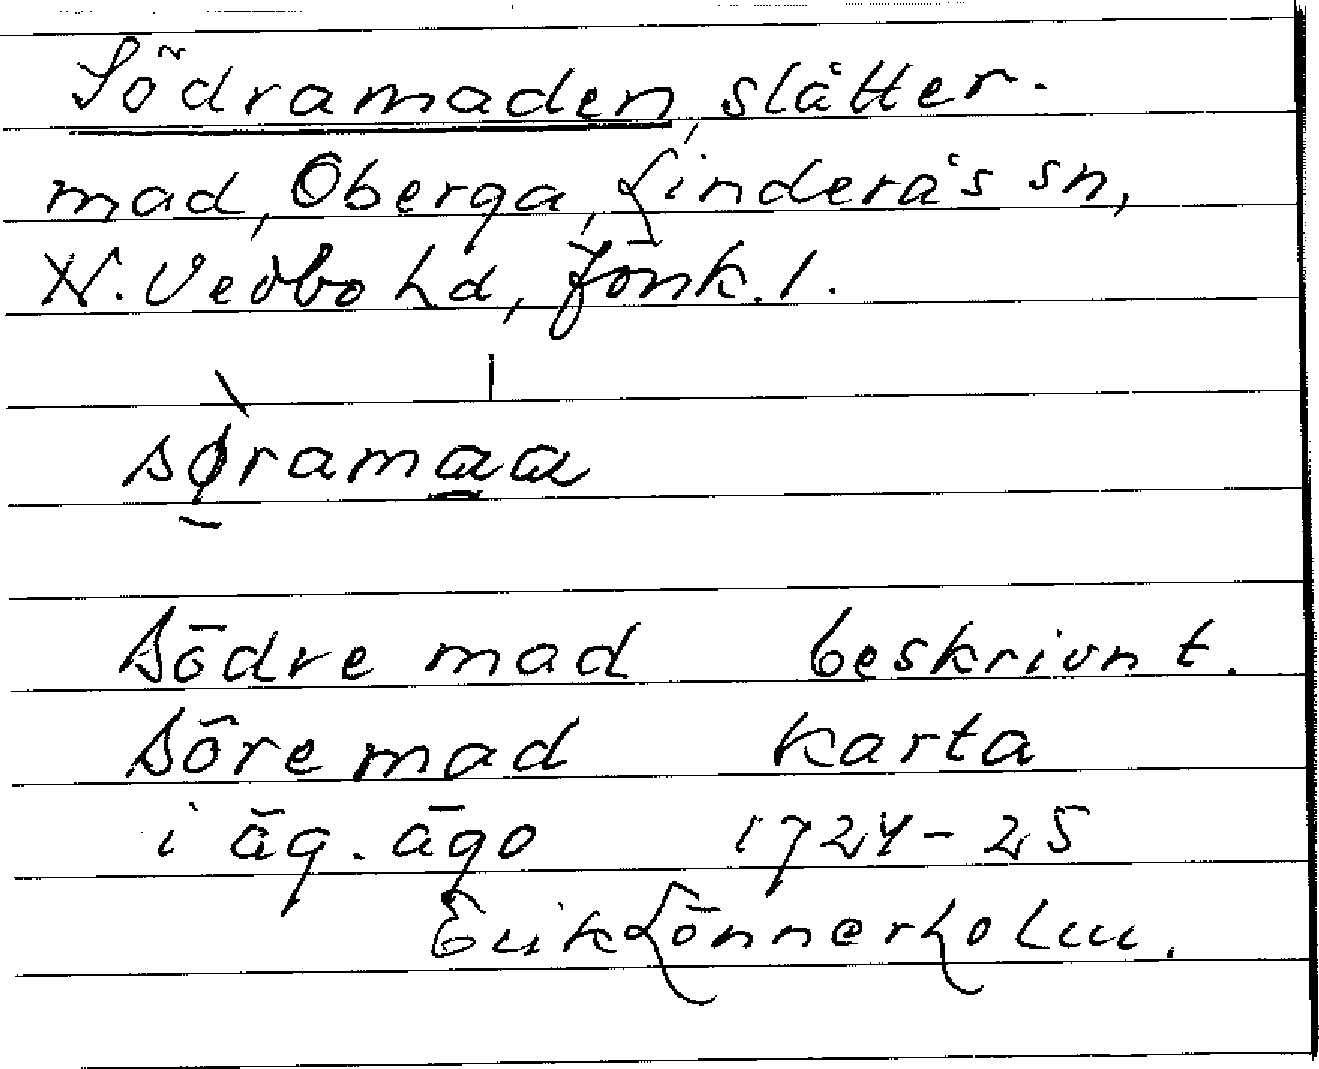 Södramaden, slåtter-
mad, Oberga, Linderås sn,
N. Vedbo hd, Jönk. l.
søramaa
Södre mad beskrivn t.
Söre mad karta
i äg. ägo 1724-25
Erik Lönnerholm.